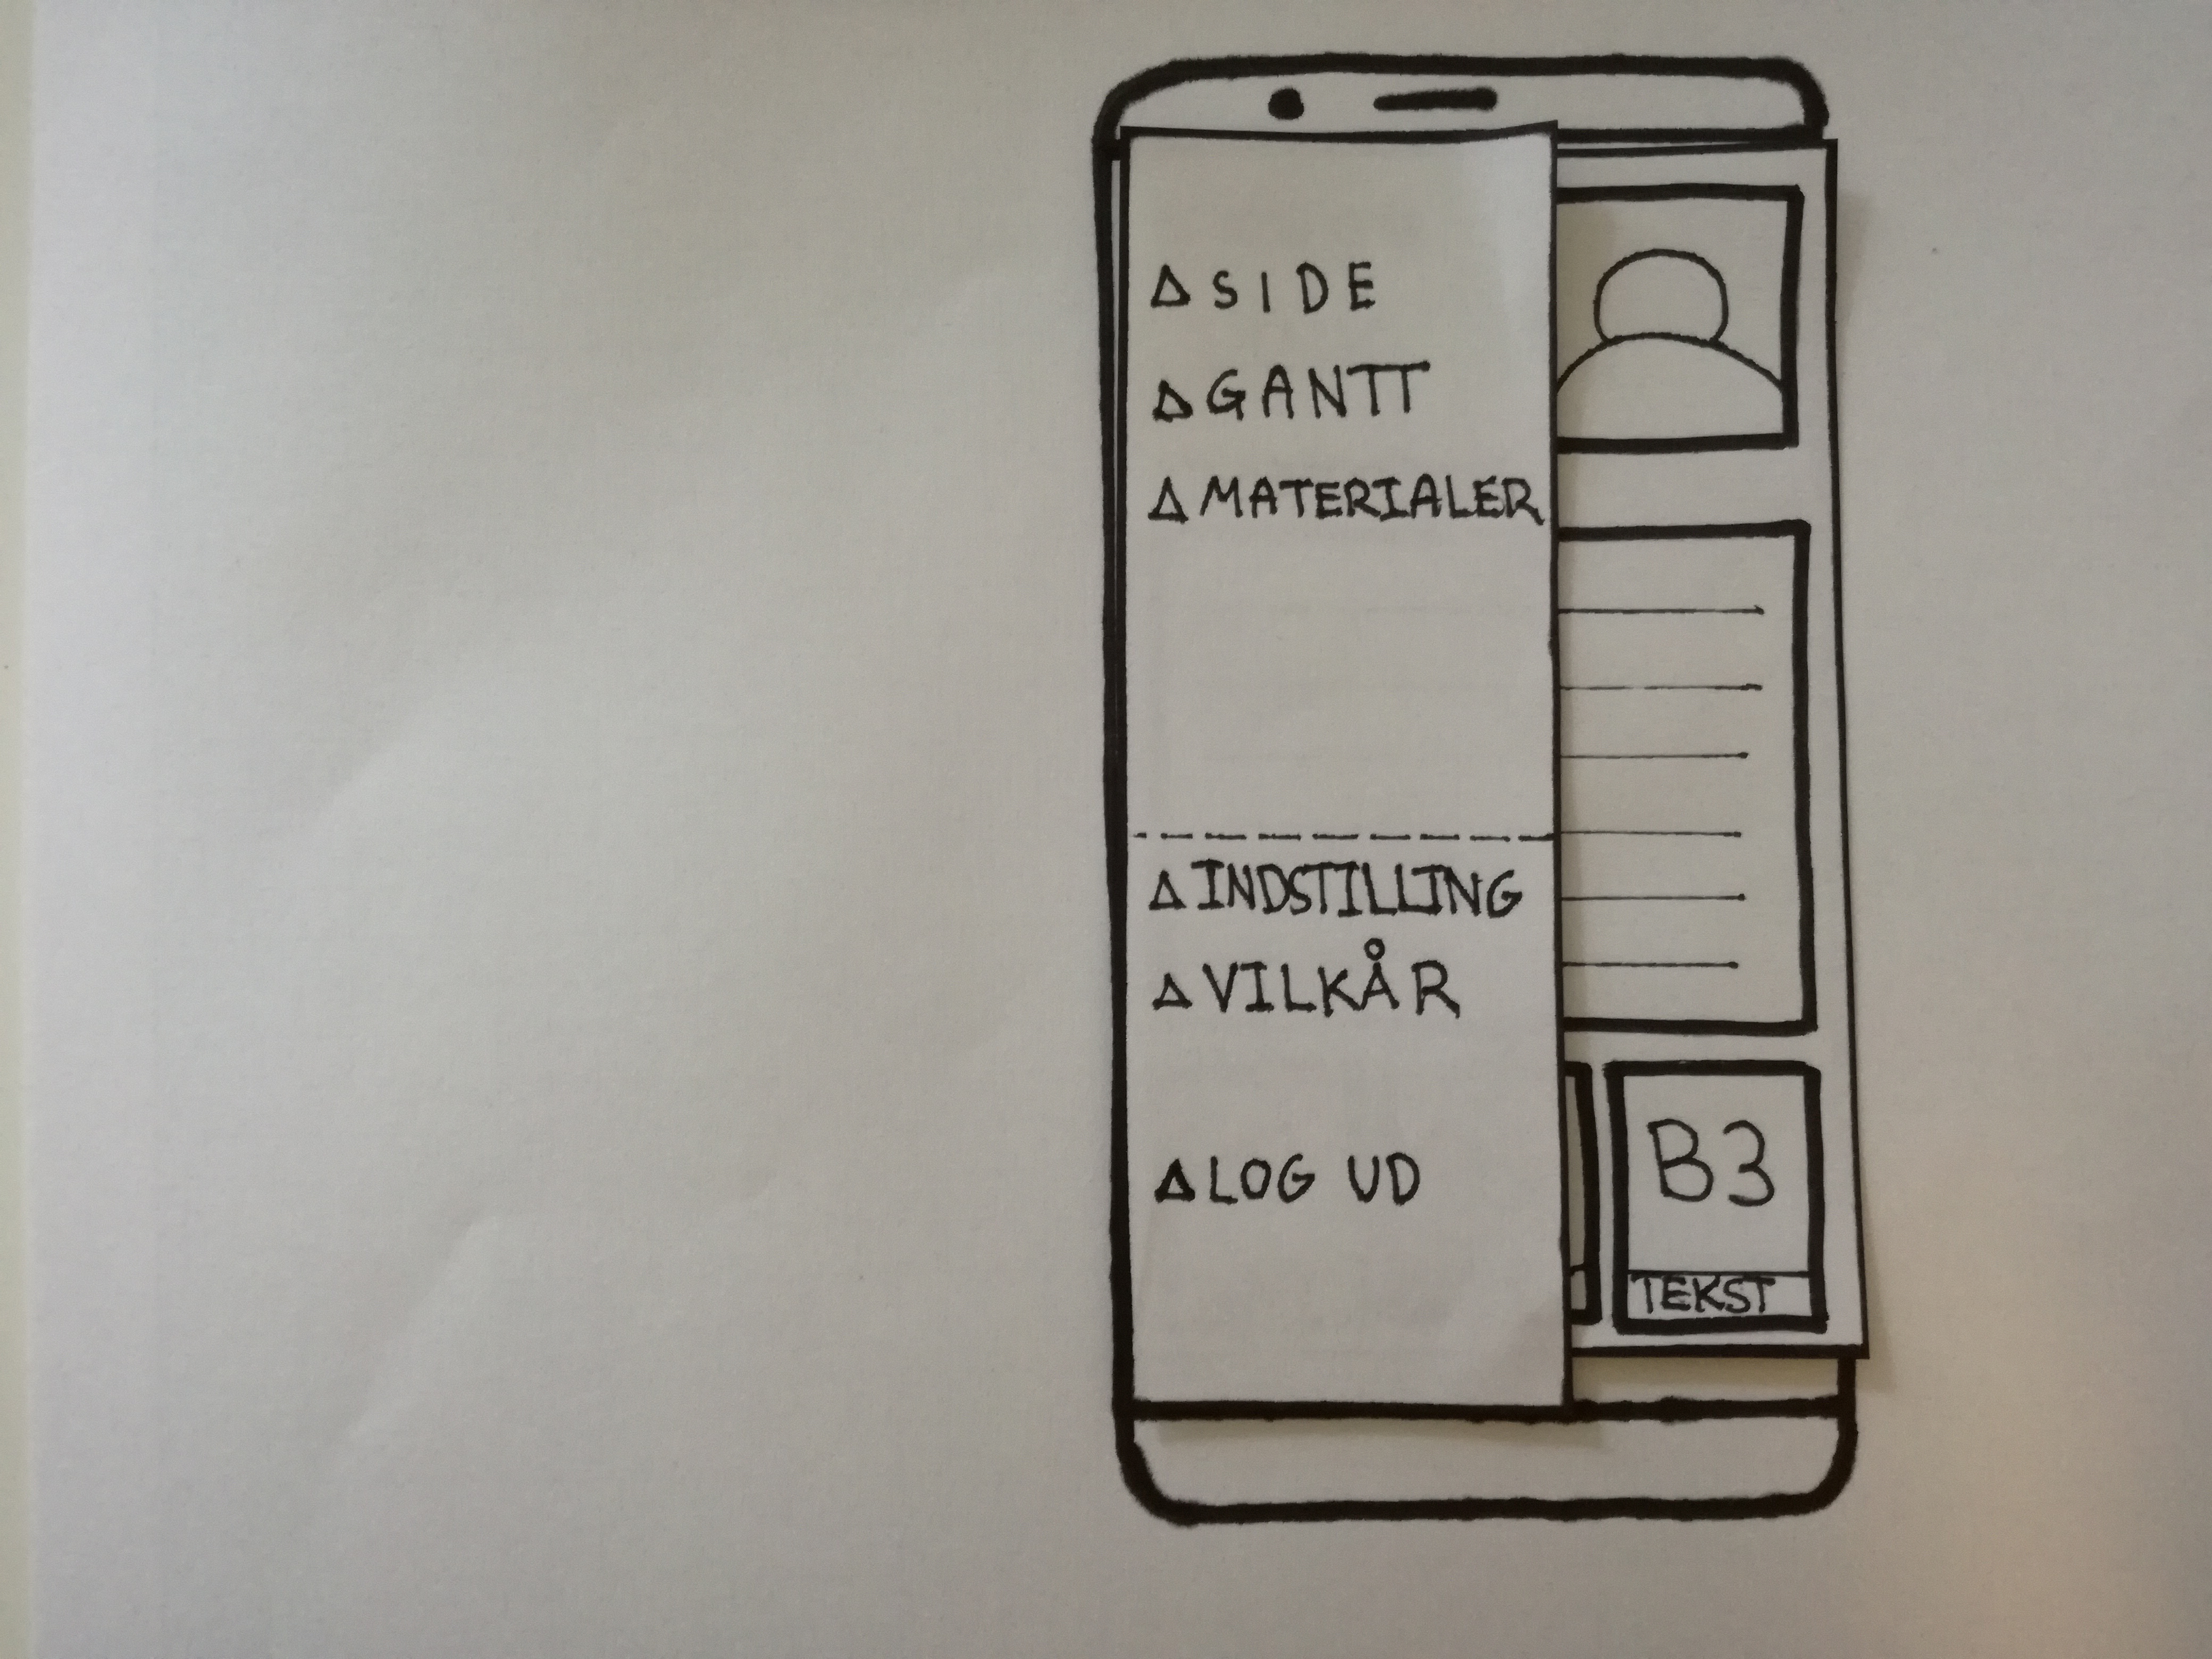 SIDE
GANTT
MATERIALER
INDSTILLING
VILKÅR
LOG UD
B3
TEKST